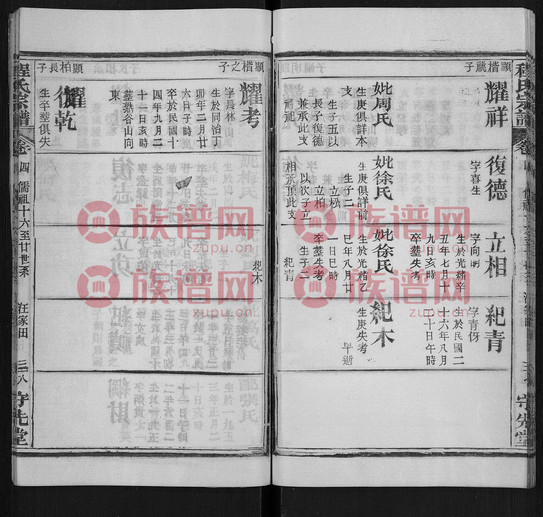 程氏宗譜
顯楷嗣子
耀祥
妣周氏
生庚俱詳本支
生子五以長子復德兼承此支
復德
字喜生
妣徐氏
生庚俱詳前
生子二
立楓
立相
以次子立相承頂此支
立相
字向明
生於光緒辛丑年七月十九日亥時
卒塟失考
妣徐氏
生於光緒乙巳年八月廿一日巳時
卒塟失考
生子二
紀青
紀木
紀青
字青伢
生於民國二十六年八月二十日午時
紀木
生庚失考
早逝
顯楷之子
耀考
字長林
生於同治丁卯年二月廿六日子時
卒於民國十四年九月二十一日亥時
塟熱谷山向東
顯柏長子
耀乾
生卒塟俱失
程氏宗譜
卷四
儒祖十六至廿世系
汪家田
三八
守先堂
族谱网
zupu.cn